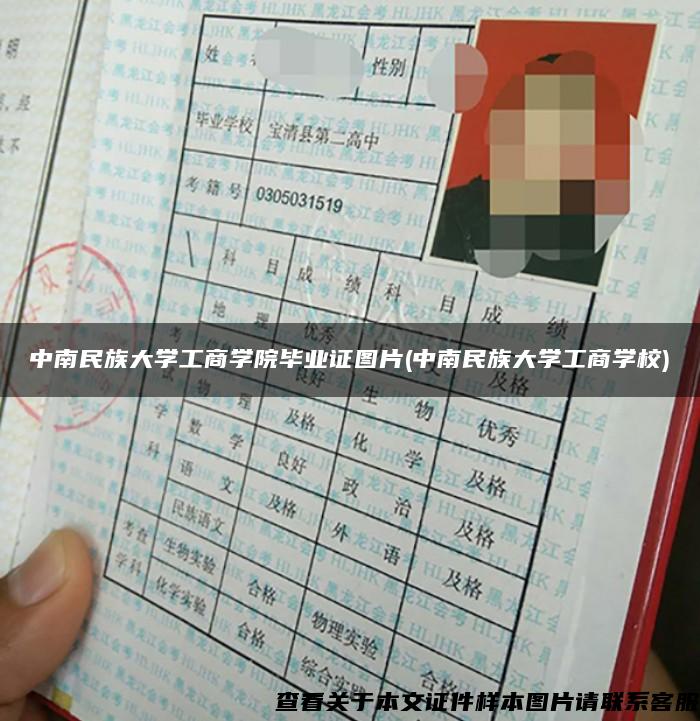 姓 性别
毕业学校 宝清县第二高中
考籍号 0305031519
科目 成绩 科目 成绩
地理 优秀
中南民族大学工商学院毕业证图片(中南民族大学工商学校)
良好 及格
物理 及格 生物 优秀
数学 良好 化学 及格
语文 及格 政治 及格
民族语文 外语 及格
考查学科 生物实验 合格 物理实验 合格
化学实验 合格 综合实
查看关于本文证件样本图片请联系客服